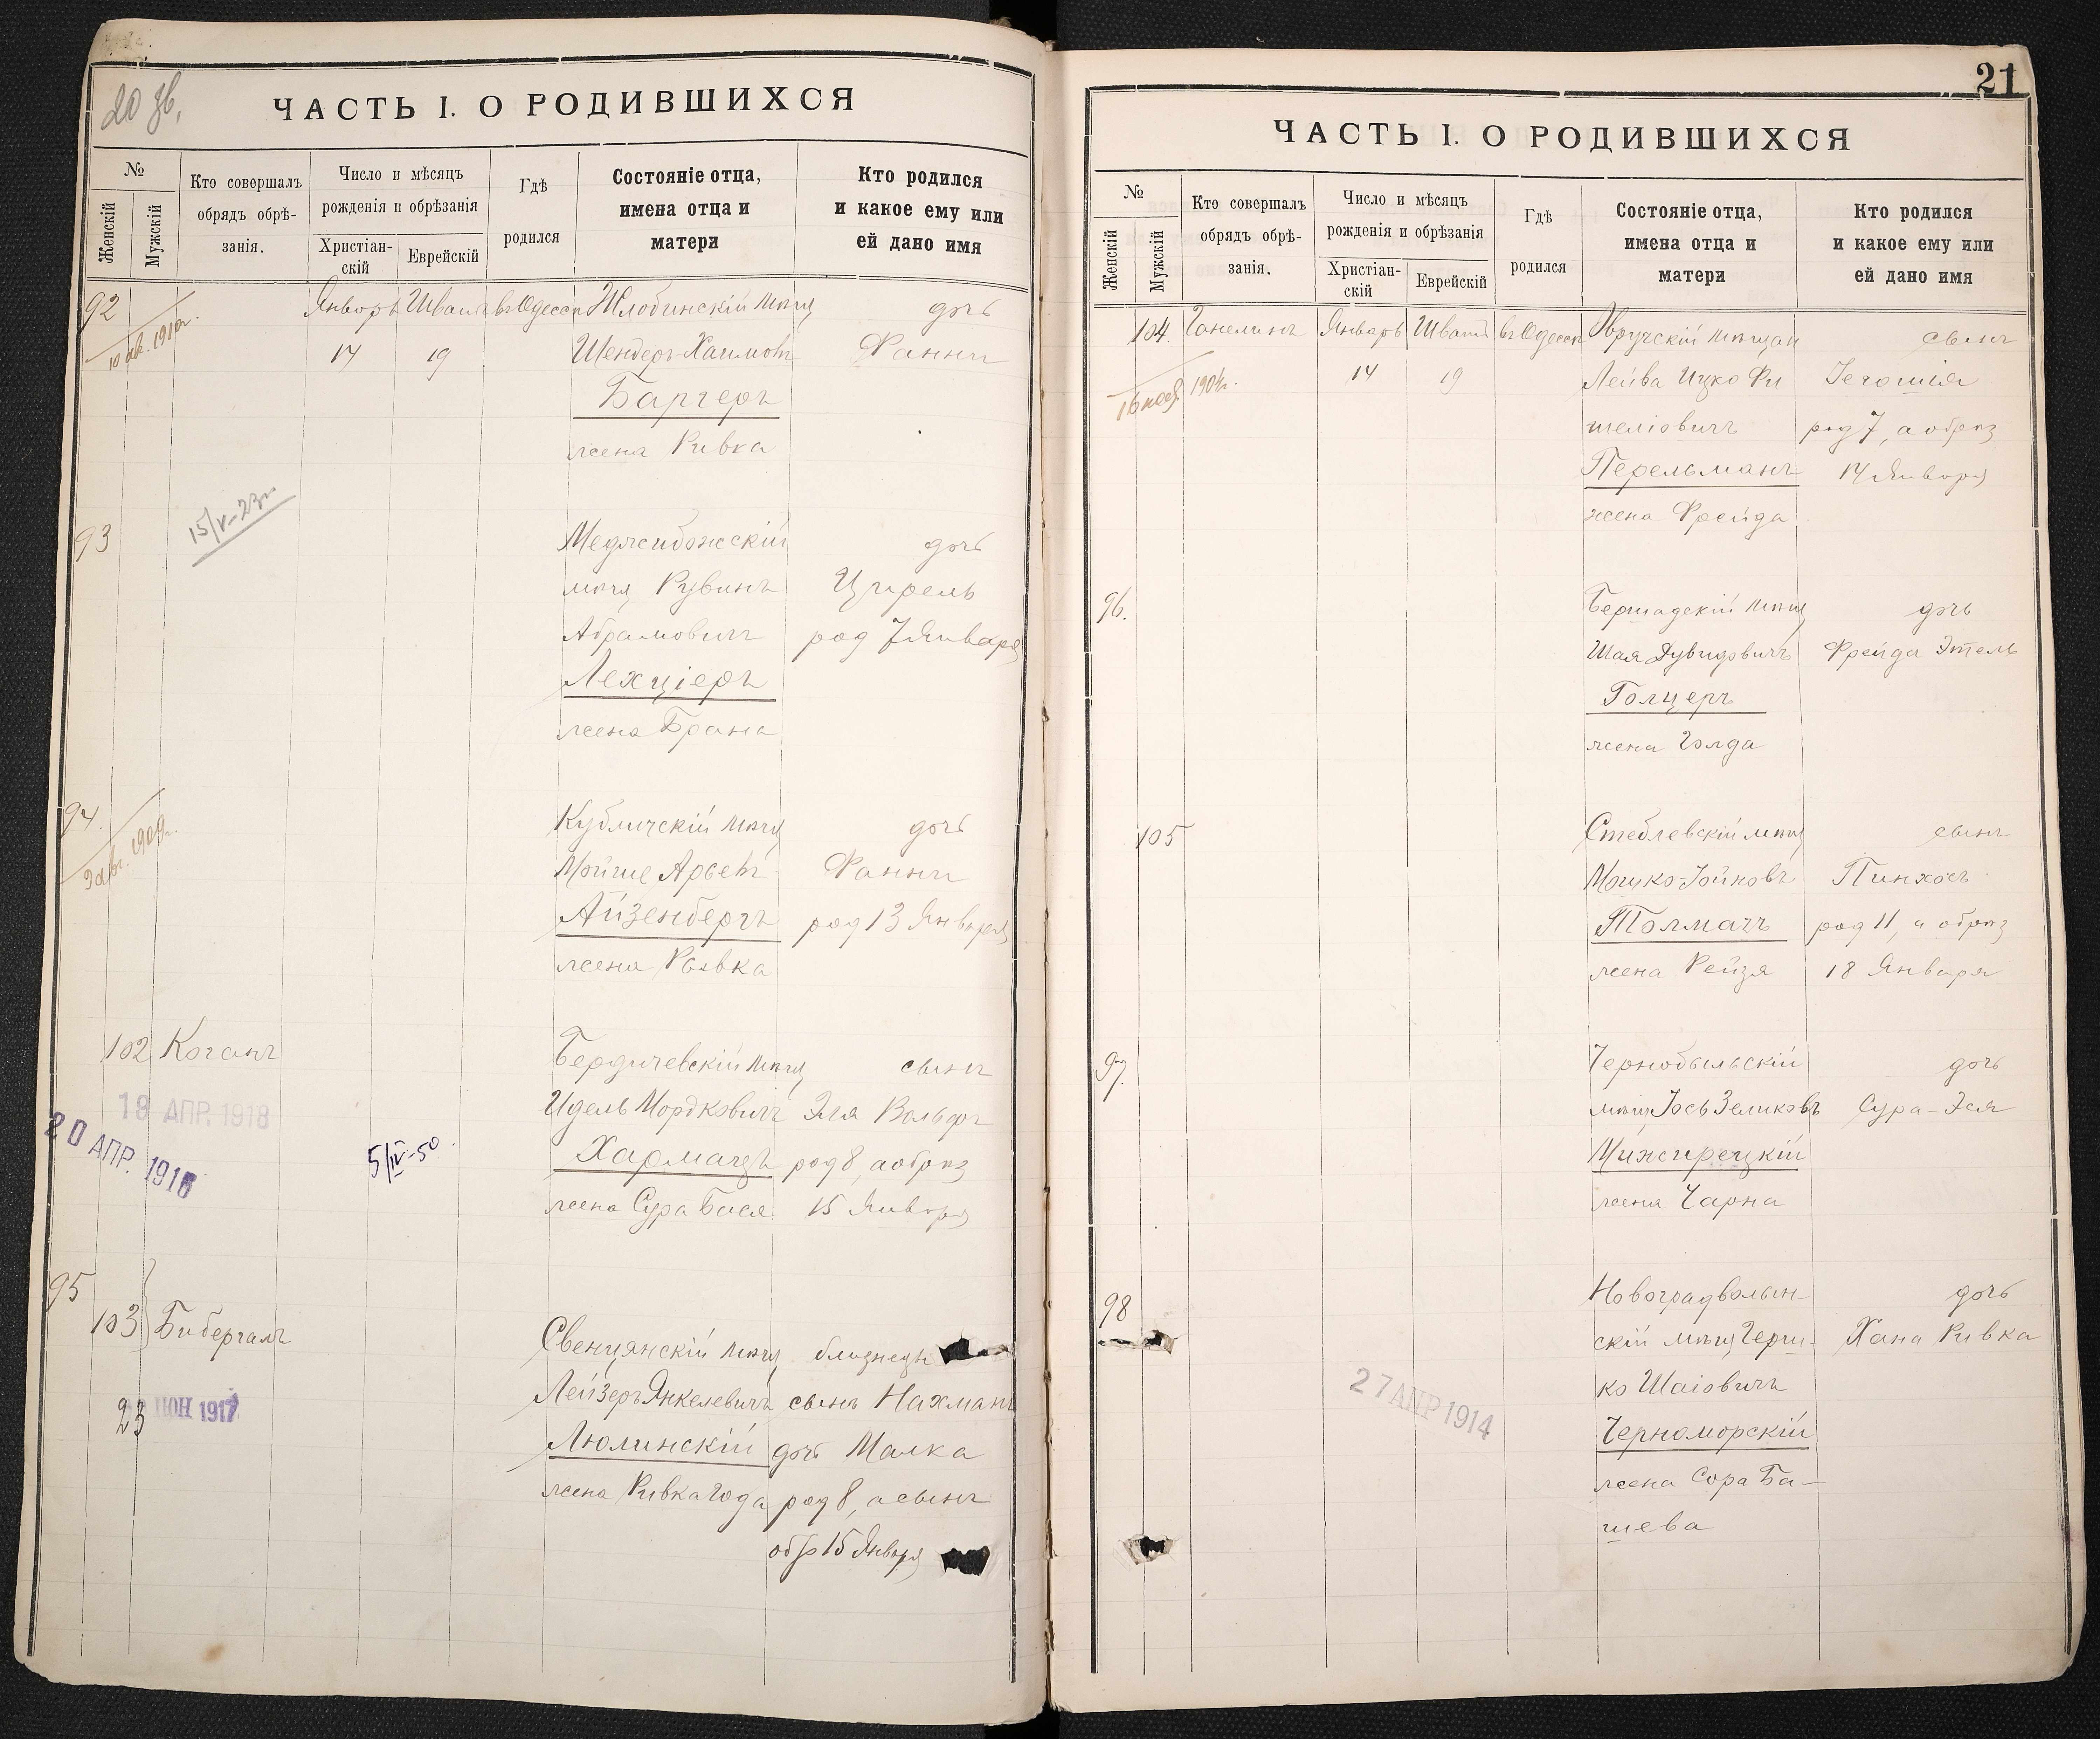 20 зв.
ЧАСТЬ I. О РОДИВШИХСЯ
№
Женскій
Мужскій
Кто совершалъ
обрядъ обрѣ-
занія.
Число и мѣсяцъ
рожденія и обрѣзанія
Христіан-
скій
Еврейскій
Гдѣ
родился
Состояніе отца,
имена отца и
матери
Кто родился
и какое ему или
ей дано имя
92 Январь Шватъ въ Одессѣ Жлобинскій мѣщ дочь
14 19 Шендеръ Хаимовъ Фанни
Баргеръ
жена Ривка
15/V-23г
93 Меджибожскій дочь
мѣщ Рувинъ Цирель
Абрамовичъ род 7 Января
Лехціеръ
жена Брана
94. Кубличскій мѣщ дочь
9 авг. 1909г.
Мойше Арьевъ Фанни
Айзенбергъ род 13 Января
жена Ривка
102 Коганъ Бердичевскій мѣщ сынъ
Идель Мордковичъ Эля Вольфъ
Хармацъ род 8, а обрѣз
жена Сура Бася 15 Января
18 АПР. 1918
20 АПР. 1918
5/IV-50
95
103 Бибергалъ Свенцянскій мѣщ близнецы
Лейзеръ Янкелевичъ сынъ Нахманъ
Люлинскій дочь Малка
жена Ривка Года род 8, а сынъ
обр 15 Января
23 ІЮН 1917
21
ЧАСТЬ I. О РОДИВШИХСЯ
№
Женскій
Мужскій
Кто совершалъ
обрядъ обрѣ-
занія.
Число и мѣсяцъ
рожденія и обрѣзанія
Христіан-
скій
Еврейскій
Гдѣ
родился
Состояніе отца,
имена отца и
матери
Кто родился
и какое ему или
ей дано имя
104. Ганелинъ Январь Шватъ въ Одессѣ Овручскій мѣщан сынъ
14 19 Лейва Ицко Фи Іегошія
шеліовичъ род 7, а обрѣз
Перельманъ 14 Января
жена Фрейда
96. Бершадскій мѣщ дочь
Шая Дувидовичъ Фрейда Этель
Голцеръ
жена Голда
105 Стеблевскій мѣщ сынъ
Мошко-Іойновъ Пинхосъ
Толмачъ род 11, а обрѣз
жена Рейзя 18 Января
97. Чернобыльскій дочь
мѣщ Іось Зеликовъ Сура-Эся
Мижирецкій
жена Чарна
98 Новоградволын- дочь
скій мѣщ Герш- Хана Ривка
ко Шаіовичъ
Черноморскій
жена Сора Ба-
шева
27 АПР 1914